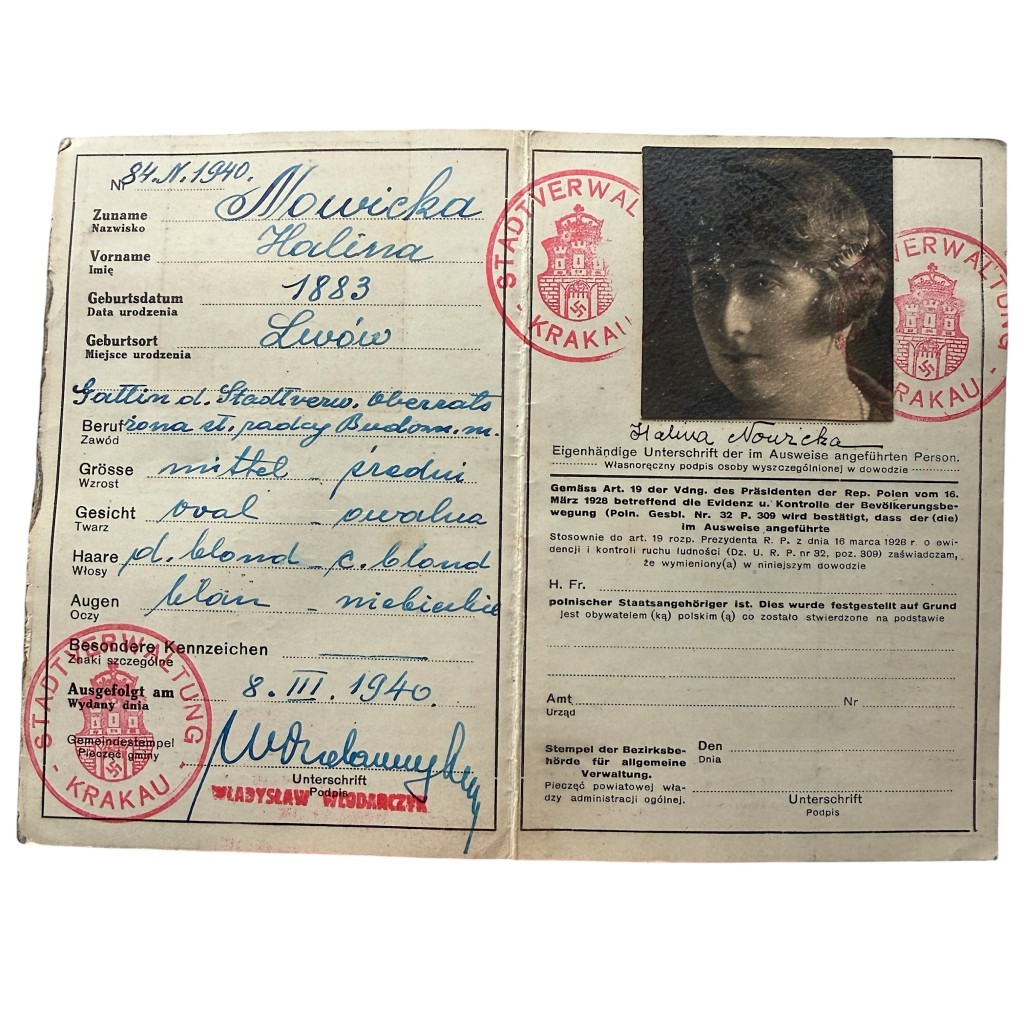 Nr 84.N.1940.
Zuname Nowicka
Nazwisko
Vorname Halina
Imię
Geburtsdatum 1883
Data urodzenia
Geburtsort Lwów
Miejsce urodzenia
Gattin d. Stadtverw. Oberrats
Beruf żona st. radcy Budown. m.
Zawód
Grösse mittel - średni
Wzrost
Gesicht oval - owalna
Twarz
Haare d. blond - c. blond
Włosy
Augen blau - niebieskie
Oczy
Besondere Kennzeichen
Znaki szczególne
Ausgefolgt am 8. III. 1940.
Wydany dnia
Gemeindestempel
Pieczęć gminy
Unterschrift
Podpis
WŁADYSŁAW WŁODARCZYK
STADTVERWALTUNG
- KRAKAU -
STADTVERWAL
- KRAKAU
VERWALTUNG
KRAKAU -
Halina Nowicka
Eigenhändige Unterschrift der im Ausweise angeführten Person.
Własnoręczny podpis osoby wyszczególnionej w dowodzie
Gemäss Art. 19 der Vdng. des Präsidenten der Rep. Polen vom 16.
März 1928 betreffend die Evidenz u. Kontrolle der Bevölkerungsbe-
wegung (Poln. Gesbl. Nr. 32 P. 309 wird bestätigt, dass der (die)
im Ausweise angeführte
Stosownie do art. 19 rozp. Prezydenta R. P. z dnia 16 marca 1928 r. o ewi-
dencji i kontroli ruchu ludności (Dz. U. R. P. nr 32, poz. 309) zaświadczam,
że wymieniony(a) w niniejszym dowodzie
H. Fr.
polnischer Staatsangehöriger ist. Dies wurde festgestellt auf Grund
jest obywatelem (ką) polskim (ą) co zostało stwierdzone na podstawie
Amt Nr
Urząd
Stempel der Bezirksbe-
hörde für allgemeine
Verwaltung.
Pieczęć powiatowej wła-
dzy administracji ogólnej.
Den
Dnia
Unterschrift
Podpis